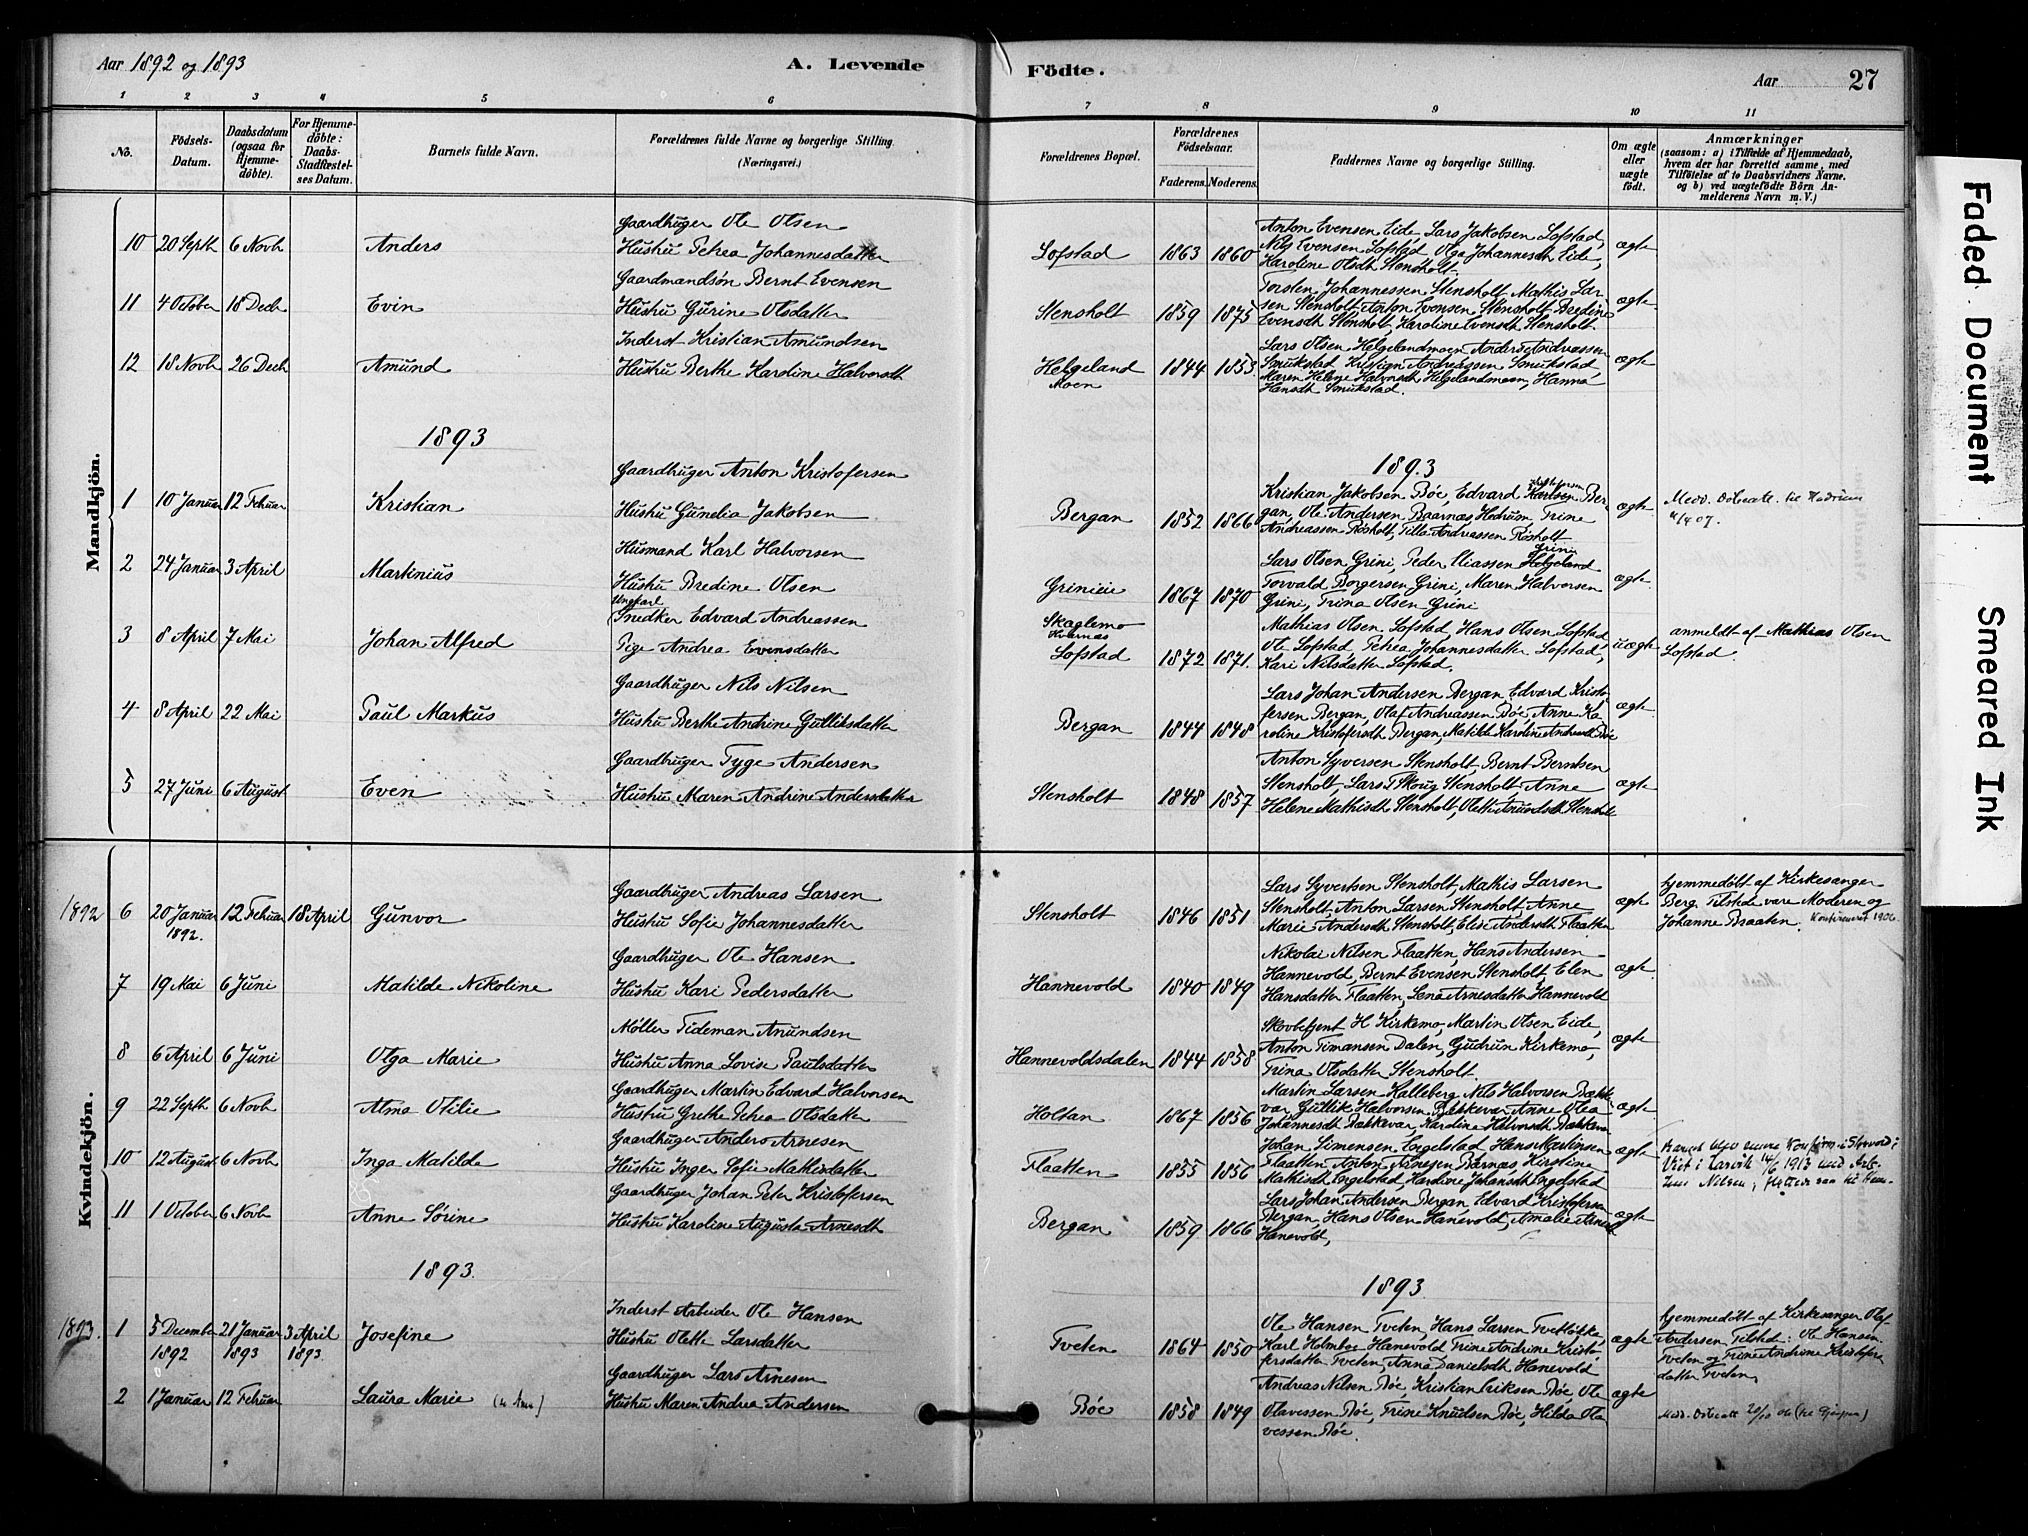 Aar 1892 og 1893
A. Levende Födte.
Aar 27
1 2 3 4 5 6 7 8 9 10 11
No.
Födsels-Datum.
Daabsdatum (ogsaa for Hjemmedöbte).
For Hjemmedöbte: Daabs-Stadfæstelses Datum.
Barnets fulde Navn.
Forældrenes fulde Navne og borgerlige Stilling. (Næringsvei.)
Forældrenes Bopæl.
Forældrenes Födselsaar.
Faderens. Moderens.
Faddernes Navne og borgerlige Stilling.
Om ægte eller uægte födt.
Anmærkninger
(saasom: a) i Tilfælde af Hjemmedaab, hvem der har forrettet samme, med Tilföielse af to Daabsvidners Navne. og b) ved uægtefödte Börn Anmelderens Navn m. V.)
Mandkjön.
10 20 Septb 6 Novb Anders
Gaardbruger Ole Olsen
Hustru Petrea Johannesdatter
Lofstad 1863 1860
Anton Evensen Eide Lars Jakobsen Lofstad,
Nils Evensen Lofstad, Olga Johannesdt Eide,
Karoline Olsdt Stensholt
ægte
11 4 October 18 Decb Evin
Gaardmandsön Bernt Evensen
Hustru Gurine Olsdatter
Stensholt 1859 1875
Torsten Johannessen Stensholt Mathis Lar-
sen Stensholt Anton Evensen Stensholt Bredine
Evensdt Stensholt, Karoline Evensdt Stensholt
ægte
12 18 Novb 26 Decb Amund
Inderst Kristian Amundsen
Hustru Berthe Karoline Halvorsdt
Helgeland
Moen 1844 1853
Lars Olsen Helgelandmoen Anders Andreassen
Smukstad Kristian Andreassen Smukstad
Maren Helene Halvorsdt Helgelandmoen, Hanna
Hansdt Smukstad.
ægte
1893
1893
1 10 Januar 12 Februar Kristian
Gaardbruger Anton Kristofersen
Hustru Gunelia Jakobsen
Bergan 1852 1866
Kristian Jakobsen Böe, Edvard Karlsen Ber-
gan, Ole Andersen Baarnæs Hedrum Trine
Andreassen Rösholt, Tilla Andreassen Rösholt
ægte
Medd. Döbeatt. til Hedrum
4/4 07.
2 24 Januar 3 April Martinius
Husmand Karl Halvorsen
Hustru Bredine Olsen
Grinieie 1867 1870
Grini
Lars Olsen Grini, Peder Eliassen Helgeland
Torvald Borgersen Grini, Maren Halvorsen
Grini, Trina Olsen Grini
ægte
3 8 April 7 Mai Johan Alfred
Ungkarl
Snedker Edvard Andreassen
Pige Andrea Evensdatter
Skaglemo
Lofstad 1872 1871.
Mathias Olsen Lofstad, Hans Olsen Lofstad
Ole Lofstad Petrea Johannesdatter Lofstad,
Kari Nilsdatter Lofstad.
uægte
anmeldt af Mathias Olsen
Lofstad.
4 8 April 22 Mai Paul Markus
Gaardbruger Nils Nilsen
Hustru Berthe Andrine Gulliksdatter
Bergan 1844 1848
Lars Johan Andersen Bergan Edvard Kristo-
fersen Bergan, Olaf Andreassen Böe, Anne Ka
roline Kristofersdt Bergan, Matilde Karoline Andreasdt Böe
ægte
5 27 Juni 6 August Even
Gaardbruger Tyge Andersen
Hustru Maren Andrine Andersdatter
Stensholt 1848 1857
Anton Syversen Stensholt, Bernt Berntsen
Stensholt, Lars T Skoug Stensholt, Anne
Helene Mathisdt Stensholt, Olette Amundsdt Stensholt
ægte
Kvindekjön.
1892 6 20 Januar 12 Februar 18 April Gunvor
1892.
Gaardbruger Andreas Larsen
Hustru Sofie Johannesdatter
Stensholt 1846 1851
Lars Syvertsen Stensholt, Mathis Larsen
Stensholt, Anton Larsen Stensholt, Anne
Marie Andersdt Stensholt, Elise Andersdt Flaatten
ægte
hjemmedöbt af Kirkesanger
Berg Tilstede vare Moderen og
Johanne Braaten. Konfirmeret 1906.
7 19 Mai 6 Juni Matilde Nikoline
Gaardbruger Ole Hansen
Hustru Kari Pedersdatter
Hannevold 1840 1849
Nikolai Nilsen Flaatten, Hans Andersen
Hannevold, Bernt Evensen Stensholt, Elen
Hansdatter Flaatten, Lena Arnesdatter Hannevold
ægte
8 6 April 6 Juni Olga Marie
Møller Tideman Anundsen
Hustru Anna Lovise Paulsdatter
Hannevoldsdalen 1844 1858
Skovbetjent H Kirkemo, Martin Olsen Eide,
Anton Timansen Dalen, Gudrun Kirkemo,
Trina Olsdatter Stensholt
ægte
9 22 Septb 6 Novb Alma Otilie
Gaardbruger Martin Edvard Halvorsen
Hustru Grethe Petrea Olsdatter
Holtan 1867 1856
Martin Larsen Halleberg Nils Halvorsen Bække-
var, Gullik Halvorsen Bækkevar, Anne Olea
Johannesdt Bækkevar, Karoline Halvorsdt Bækkevar
ægte
10 12 August 6 Novb Inga Matilde
Gaardbruger Anders Arnesen
Hustru Inger Sofie Mathisdatter
Flaatten 1855 1856
Johan Simensen Engelstad Hans Martinsen
Flaatten, Anton Arnesen Barnæs, Kirstine
Mathisdt Engelstad, Hardine Johansdt Engelstad
ægte
Vist i Larvik 14/6 1913 med
Nilsen,
11 1 October 6 Novb Anne Sörine
Gaardbruger Johan Peter Kristofersen
Hustru Karoline Augusta Arnesdt
Bergan 1859 1866
Lars Johan Andersen Bergan, Edvard Kristofersen
Bergan, Hans Olsen Hanevold, Amalie Arnesdt
Hanevold,
ægte
1893.
1893
1893. 1 5 December 21 Januar 3 April Josefine
1892 1893 1893.
Inderst Arbeider Ole Hansen
Hustru Olette Larsdatter
Tveten 1864 1850
Ole Hansen Tveten, Hans Larsen Tvetløkke
Karl Holmboe Hanevold Trine Andrine Kristo-
fersdatter Tveten, Anna Danielsdt Hanevold
ægte
hjemmedöbt af Kirkesanger Olaf
Andersen Tilsted: Ole Hansen
Tveten og Trine Andrine Kristofers
datter Tveten.
2 1 Januar 12 Februar Laura Marie
Gaardbruger Lars Arnesen
Hustru Maren Andrea Andersen
Böe 1858 1849
Andreas Nilsen Böe, Kristian Eriksen Böe, Ole
Olavessen Böe, Trine Knudsen Böe, Hilda Ola
vessen Böe.
ægte
Medd. Döbeatt 20/10 06 (til Gjerpen)
Faded Document
Smeared Ink